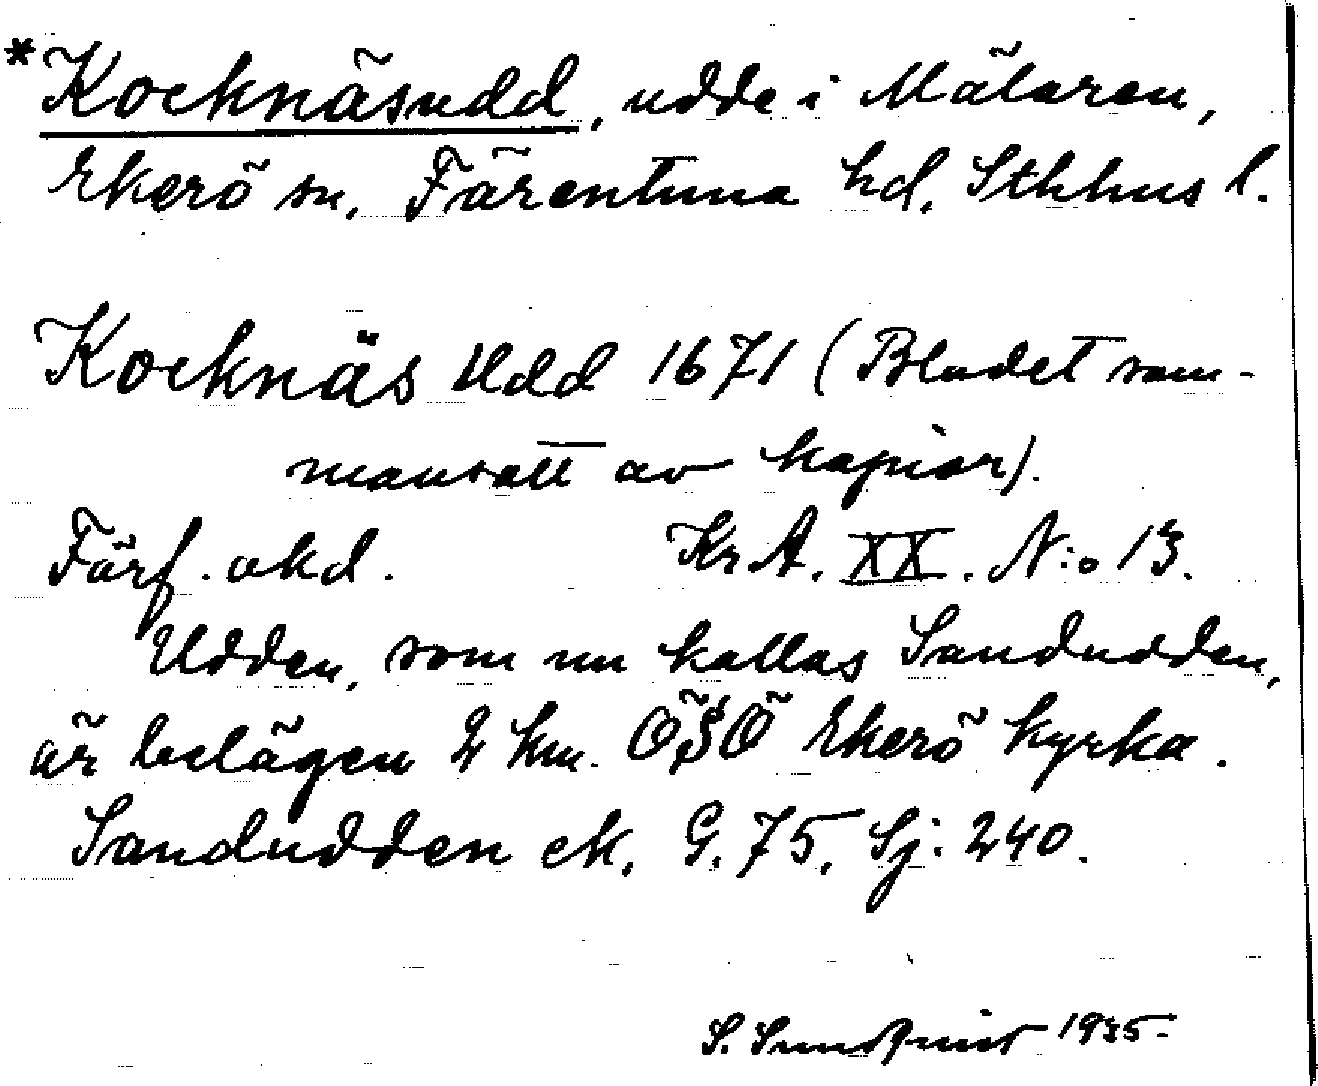 *Kocknäsudd, udde i Mälaren,
Ekerö sn, Färentuna hd, Sthlms l.
Kocknäs Udd 1671 (Bladet sam-
mansatt av kopior).
Förf. okd. Kr.A. XX. N:o 13.
Udden, som nu kallas Sandudden,
är belägen 2 km. ÖSÖ Ekerö kyrka.
Sandudden ek. G. 75. Sj: 240.
S. Sundqvist 1935.